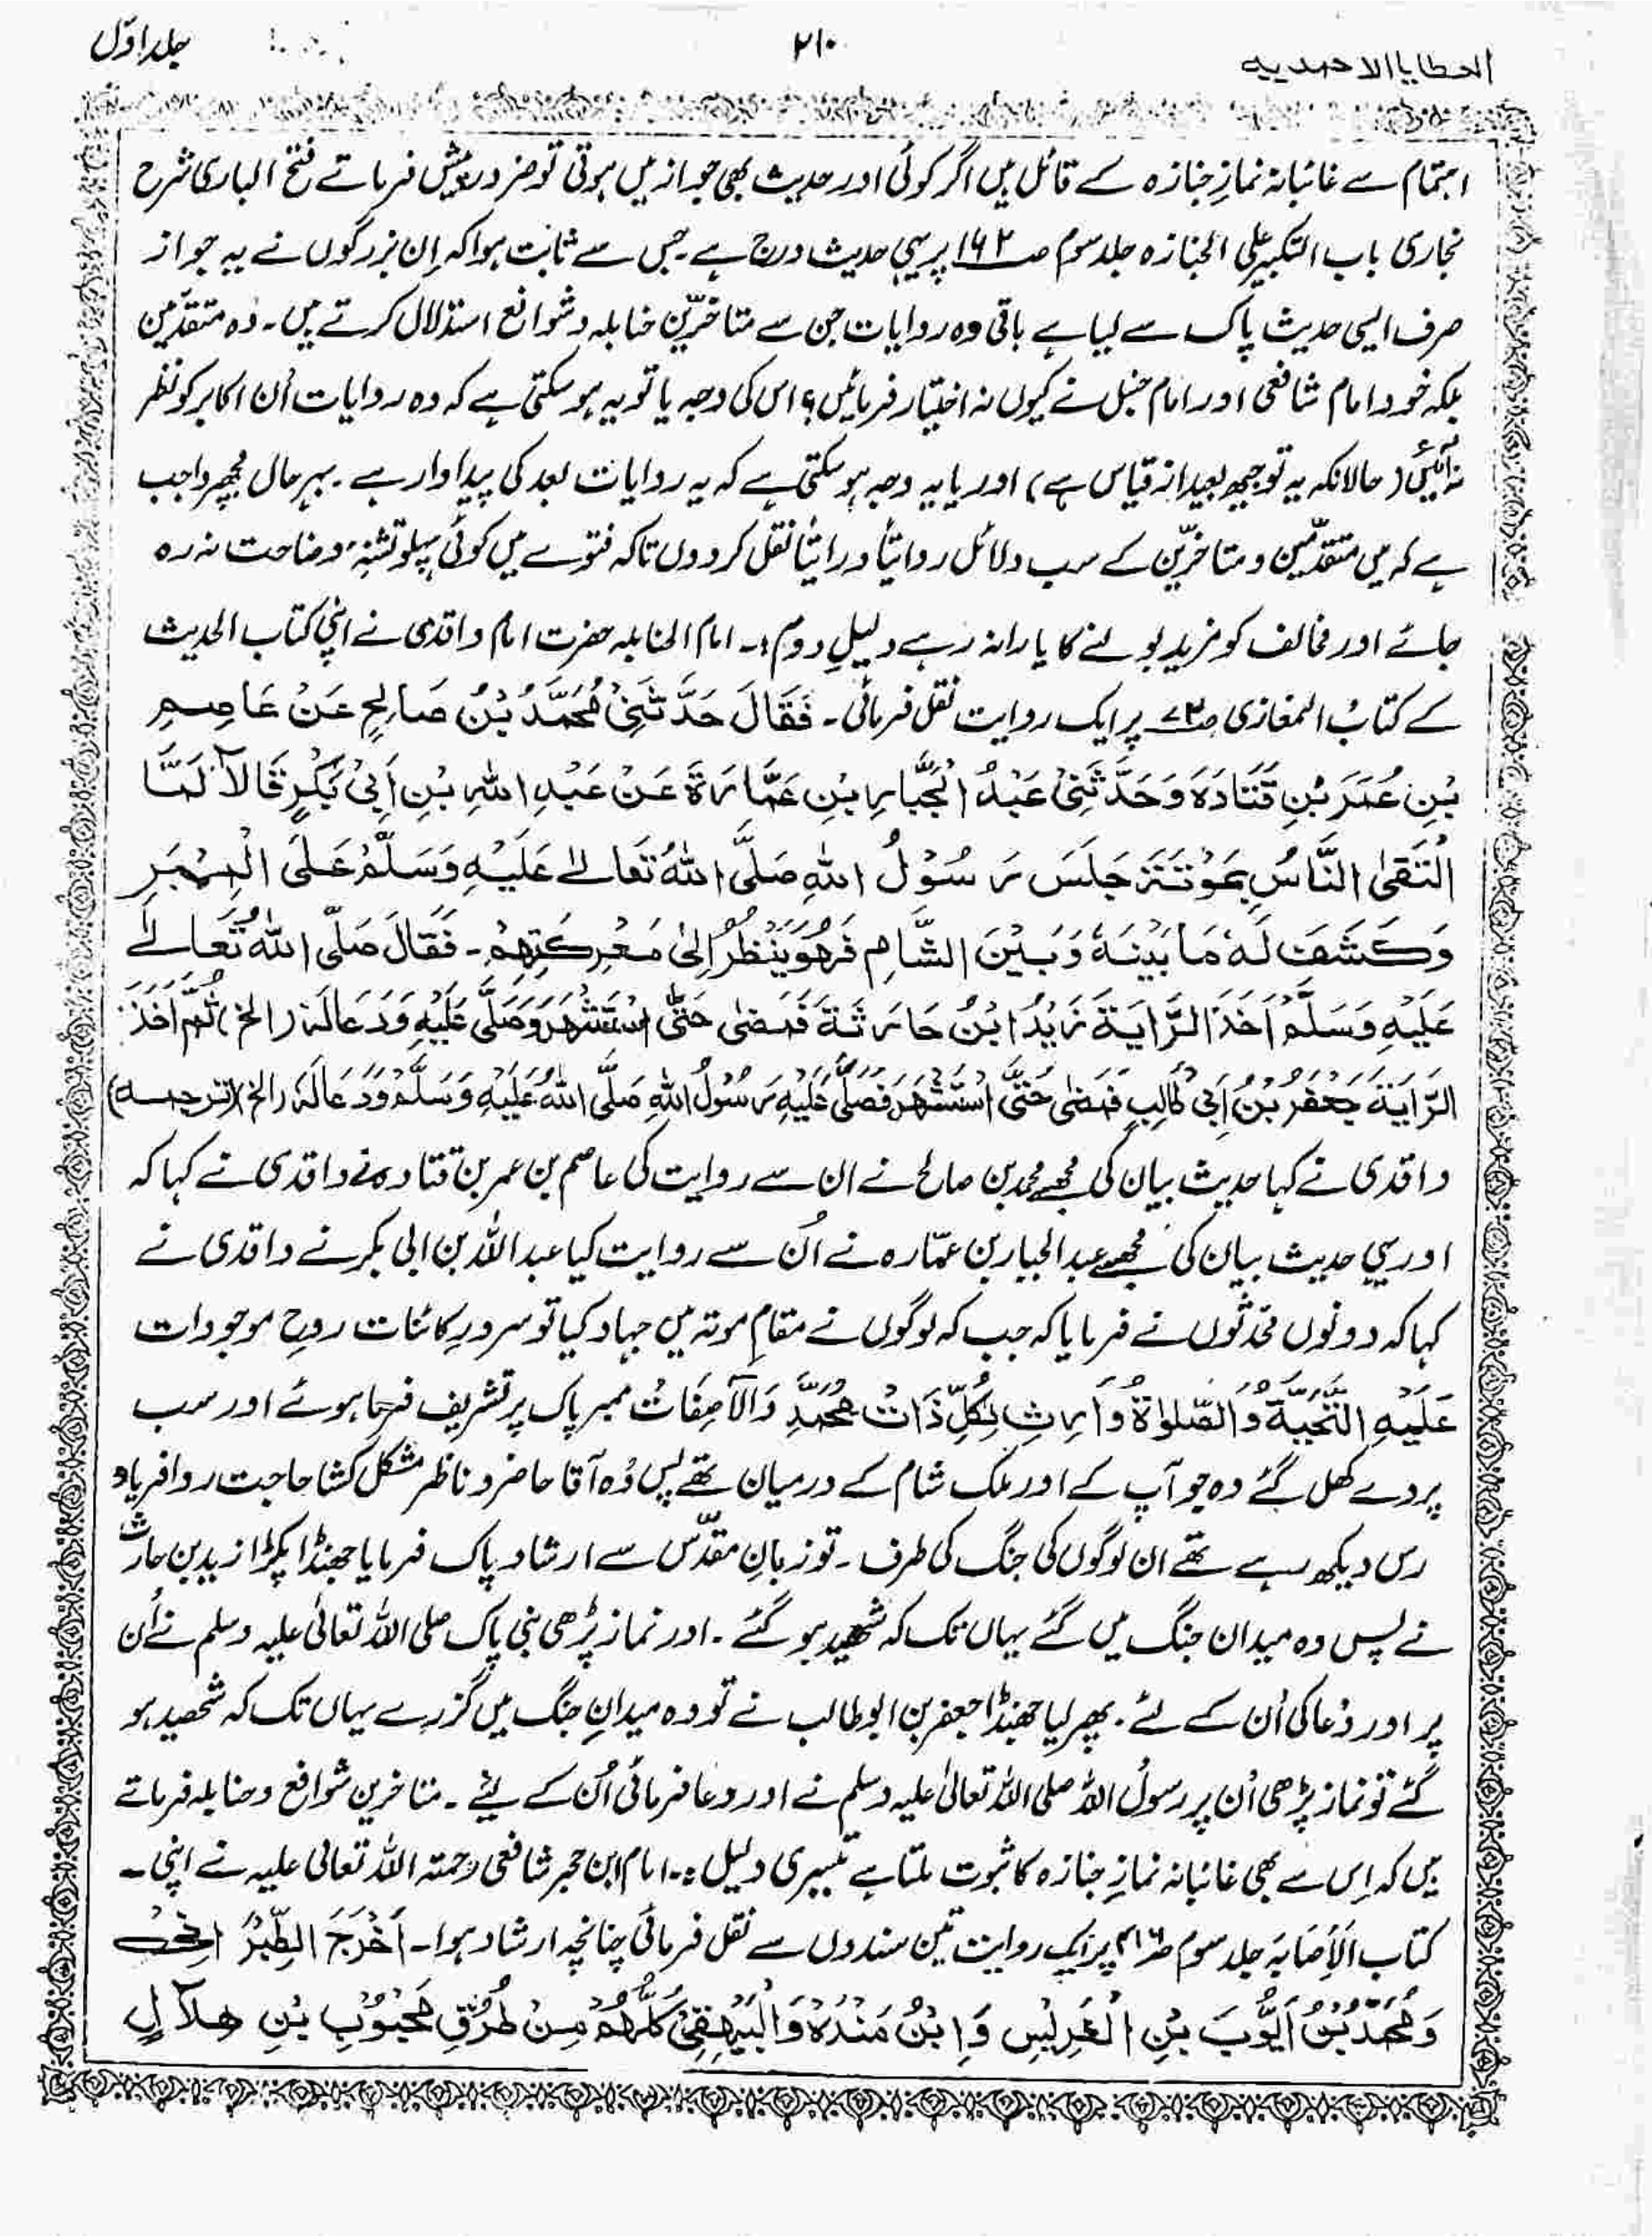 العطایا الاحمدیہ
۲۱۰
جلد اوّل
اہتمام سے غائبانہ نمازِ جنازہ کے قائل ہیں اگر کوئی اور حدیث بھی جواز میں ہوتی تو ضرور پیش فرماتے فتح الباری شرح
بخاری باب التکبیر علی الجنازہ جلد سوم صـ۱۶۲ پر یہی حدیث درج ہے۔ جس سے ثابت ہوا کہ اِن بزرگوں نے یہ جواز
صرف ایسی حدیث پاک سے لیا ہے باقی وہ روایات جن سے متاخرّین حنابلہ و شوافع استدلال کرتے ہیں۔ وہ متقدّمین
بلکہ خود امام شافعی اور امام حنبل نے کیوں نہ اختیار فرمائیں؟ اس کی وجہ یا تو یہ ہو سکتی ہے کہ وہ روایات اُن اکابر کو نظر
نہ آئیں (حالانکہ یہ توجیھہ بعید از قیاس ہے) اور یا یہ وجہ ہو سکتی ہے کہ یہ روایات بعد کی پیداوار ہے۔ بہر حال مجھ پر واجب
ہے کہ میں متقدّمین و متاخرّین کے سب دلائل روایتاً ورائتاً نقل کر دوں تاکہ فتوے میں کوئی پہلو تشنۂ وضاحت نہ رہ
جائے اور مخالف کو مزید بولنے کا یارا نہ رہے دلیلِ دوم :۔ امام الحنابلہ حضرت امام واقدی نے اپنی کتاب الحدیث
کے کتابُ المغازی پر ایک روایت نقل فرمائی۔ فَقَالَ حَدَّثَنِیْ مُحَمَّدُ بْنُ صَالِحٍ عَنْ عَاصِمِ
بْنِ عُمَرَ بْنِ قَتَادَۃَ وَحَدَّثَنِیْ عَبْدُ الْجَبَّارِ بْنِ عَمَّارَۃَ عَنْ عَبْدِ اللہِ بْنِ اَبِیْ بَکْرٍ قَالَا لَمَّا
الْتَقَی النَّاسُ بِمَوْتَۃَ جَلَسَ رَسُوْلُ اللہِ صَلَّی اللہُ تَعَالٰے عَلَیْہِ وَسَلَّمْ عَلَی الْمِنْبَرِ
وَکَشَفَ لَہٗ مَا بَیْنَہٗ وَبَیْنَ الشَّامِ فَہُوَ یَنْظُرُ اِلٰی مَعْرِکَتِہِمْ۔ فَقَالَ صَلَّی اللہُ تَعَالٰے
عَلَیْہِ وَسَلَّمْ اَخَذَ الرَّایَۃَ زَیْدُ ابْنُ حَارَثَۃَ فَمَضٰی حَتّٰی اسْتَشْہَرَ وَصَلّٰی عَلَیْہِ وَدَعَا لَہٗ (الخ) ثُمَّ اَخَذَ
الرَّایَۃَ جَعْفَرُ بْنُ اَبِیْ طَالِبٍ فَمَضٰی حَتّٰی اسْتَشْہَرَ فَصَلّٰی عَلَیْہِ رَسُوْلُ اللہِ صَلَّی اللہُ عَلَیْہِ وَسَلَّمْ وَدَعَا لَہٗ (الخ) (ترجمہ)
واقدی نے کہا حدیث بیان کی مجھے محمد بن صالح نے ان سے روایت کی عاصم بن عمر بن قتادہ نے واقدی نے کہا کہ
اور یہی حدیث بیان کی مجھے عبد الجبار بن عمّارہ نے اُن سے روایت کیا عبد اللہ بن ابی بکر نے واقدی نے
کہا کہ دونوں محدّثوں نے فرمایا کہ جب کہ لوگوں نے مقامِ موتہ میں جہاد کیا تو سرورِ کائنات روحِ موجودات
عَلَیْہِ التَّحِیَّۃُ وَالصَّلوٰۃُ وَاٰرِثِ لِکُلِّ ذَاتْ مُحَمَّدٍ وَالآصِفَاتْ ممبر پاک پر تشریف فرما ہوئے اور سب
پردے کھل گئے وہ جو آپ کے اور ملک شام کے درمیان تھے پس وُہ آقا حاضر و ناظر مشکل کشا حاجت روا فریاد
رس دیکھ رہے تھے ان لوگوں کی جنگ کی طرف۔ تو زبانِ مقدّس سے ارشاد پاک فرمایا جھنڈا پکڑا زید بن حارث
نے پس وہ میدان جنگ میں گئے یہاں تک کہ شہید ہو گئے۔ اور نماز پڑھی نبی پاک صلی اللہ تعالیٰ علیہ وسلم نے اُن
پر اور دُعا کی اُن کے لئے۔ پھر لیا جھنڈا جعفر بن ابو طالب نے تو وہ میدانِ جنگ میں گزرے یہاں تک کہ شھید ہو
گئے تو نماز پڑھی اُن پر رسولُ اللہ صلی اللہ تعالیٰ علیہ وسلم نے اور دعا فرمائی اُن کے لیے۔ متاخرین شوافع و حنابلہ فرماتے
ہیں کہ اِس سے بھی غائبانہ نمازِ جنازہ کا ثبوت ملتا ہے تیسری دلیل :۔ امام ابن حجر شافعی رحمتہ اللہ تعالی علیہ نے اپنی۔
کتاب اَلْاِصَابَہ جلد سوم پر ایک روایت تین سندوں سے نقل فرمائی چنانچہ ارشاد ہوا۔ اَخْرَجَ الطِّبْرَانِیُّ
وَمُحَمَّدُ بْنُ اَیُّوْبَ بْنِ الْغَرِیْسِ وَابْنُ مَنْدَہٗ وَالْبَیْہَقِیْ کُلُّہُمْ مِنْ طُرُقِ مَحْبُوْبِ بْنِ ھِلَالٍ